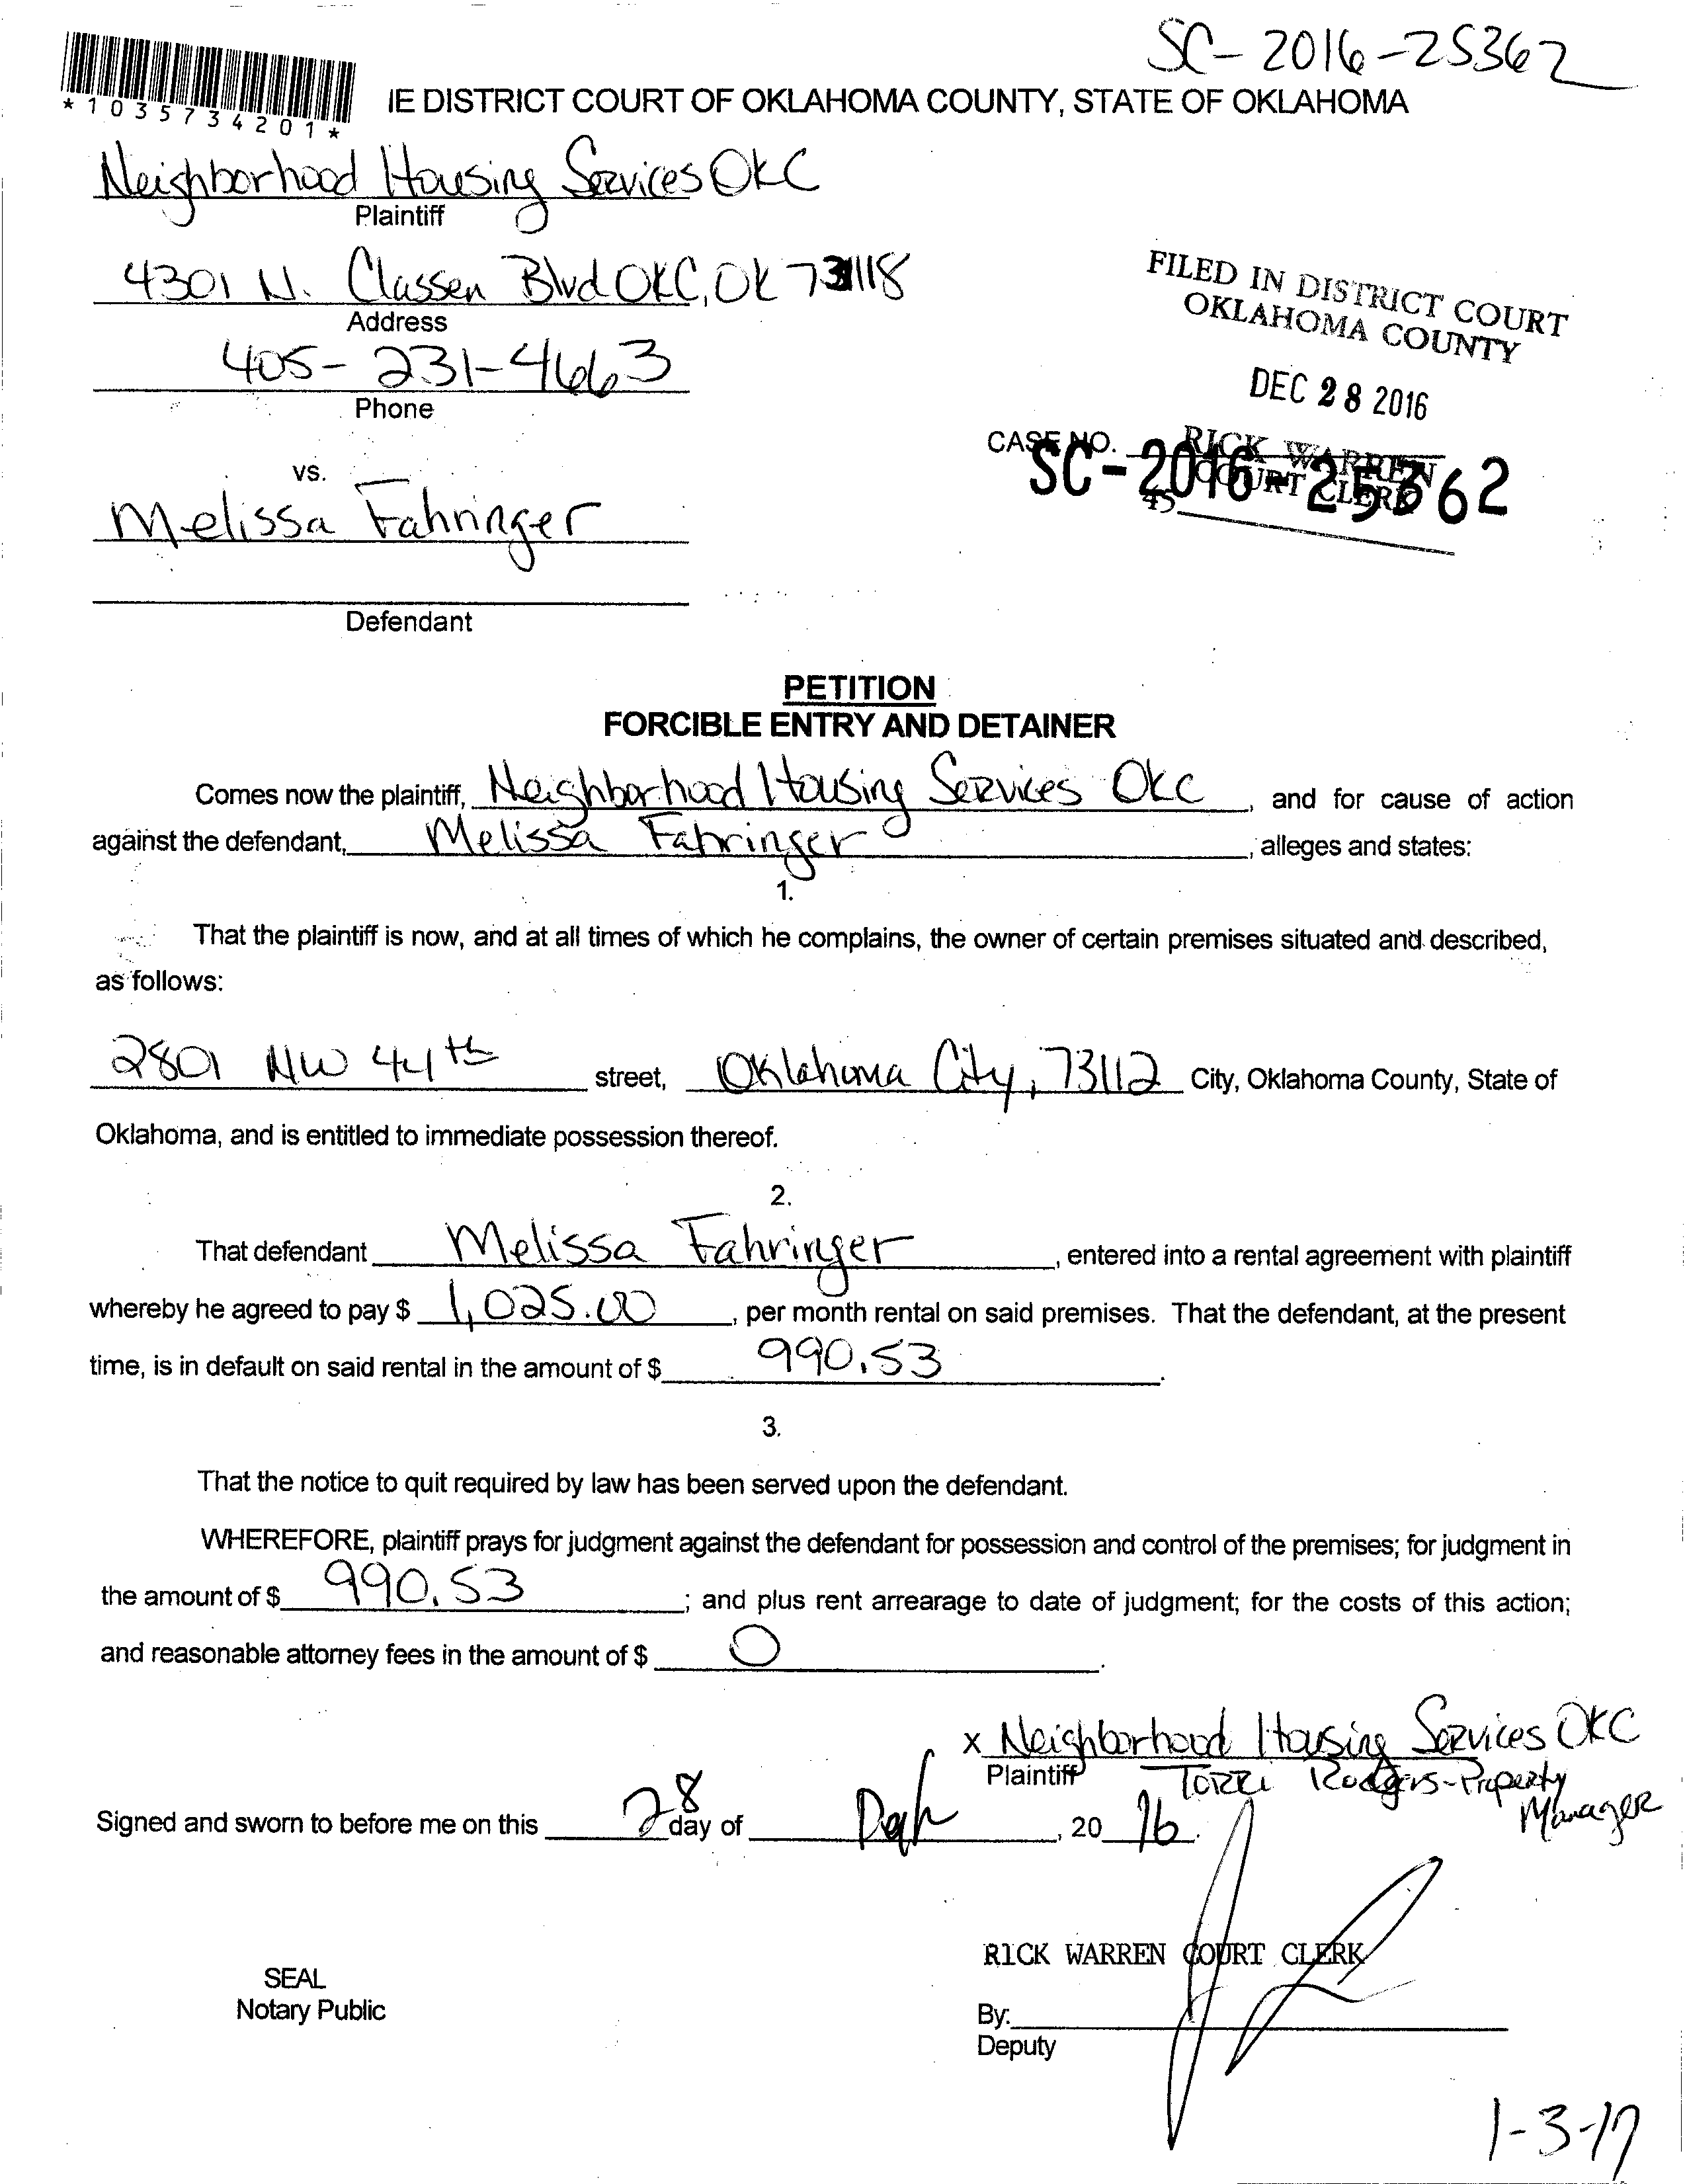 SC-2016-25362
*1035734201*
IE DISTRICT COURT OF OKLAHOMA COUNTY, STATE OF OKLAHOMA
Neighborhood Housing Services OKC
Plaintiff
4301 N. Classen Blvd OKC, OK 73118
Address
405-231-4663
Phone
FILED IN DISTRICT COURT
OKLAHOMA COUNTY
DEC 28 2016
RICK WARREN
COURT CLERK
45
CASE NO.
SC-2016-25362
vs.
Melissa Fahringer
Defendant
PETITION
FORCIBLE ENTRY AND DETAINER
Comes now the plaintiff, Neighborhood Housing Services OKC, and for cause of action
against the defendant, Melissa Fahringer, alleges and states:
1.
That the plaintiff is now, and at all times of which he complains, the owner of certain premises situated and described,
as follows:
2801 NW 44th street, Oklahoma City, 73112 City, Oklahoma County, State of
Oklahoma, and is entitled to immediate possession thereof.
2.
That defendant Melissa Fahringer, entered into a rental agreement with plaintiff
whereby he agreed to pay $ 1,025.00, per month rental on said premises. That the defendant, at the present
time, is in default on said rental in the amount of $ 990.53.
3.
That the notice to quit required by law has been served upon the defendant.
WHEREFORE, plaintiff prays for judgment against the defendant for possession and control of the premises; for judgment in
the amount of $ 990.53; and plus rent arrearage to date of judgment; for the costs of this action;
and reasonable attorney fees in the amount of $ 0.
x Neighborhood Housing Services OKC
Plaintiff Torri Rodgers-Property
Manager
Signed and sworn to before me on this 28 day of , 20 16.
RICK WARREN COURT CLERK
SEAL
Notary Public
By:
Deputy
1-3-17